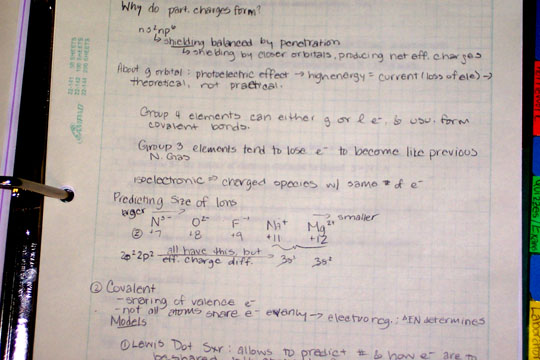 Why do part. charges form?
ns²np⁶
↳ shielding balanced by penetration
↳ shielding by closer orbitals, producing net eff. charges
About g orbital: photoelectric effect → high energy = current (loss of ele) →
theoretical, not practical.
Group 4 elements can either g or l e⁻, & usu. form
covalent bonds.
Group 3 elements tend to lose e⁻ to become like previous
N. Gas
isoelectronic ⇒ charged species w/ same # of e⁻
Predicting Size of Ions
larger → smaller
N³⁻ O²⁻ F⁻¹ Na⁺ Mg²⁺
(Z) +7 +8 +9 +11 +12
2s²2p² all have this, but eff. charge diff. → 3s¹ 3s²
② Covalent
- sharing of valence e⁻
- not all atoms share e⁻ evenly → electroneg.: ΔEN determines
Models
① Lewis Dot Sxr: allows to predict # & how e⁻ are to